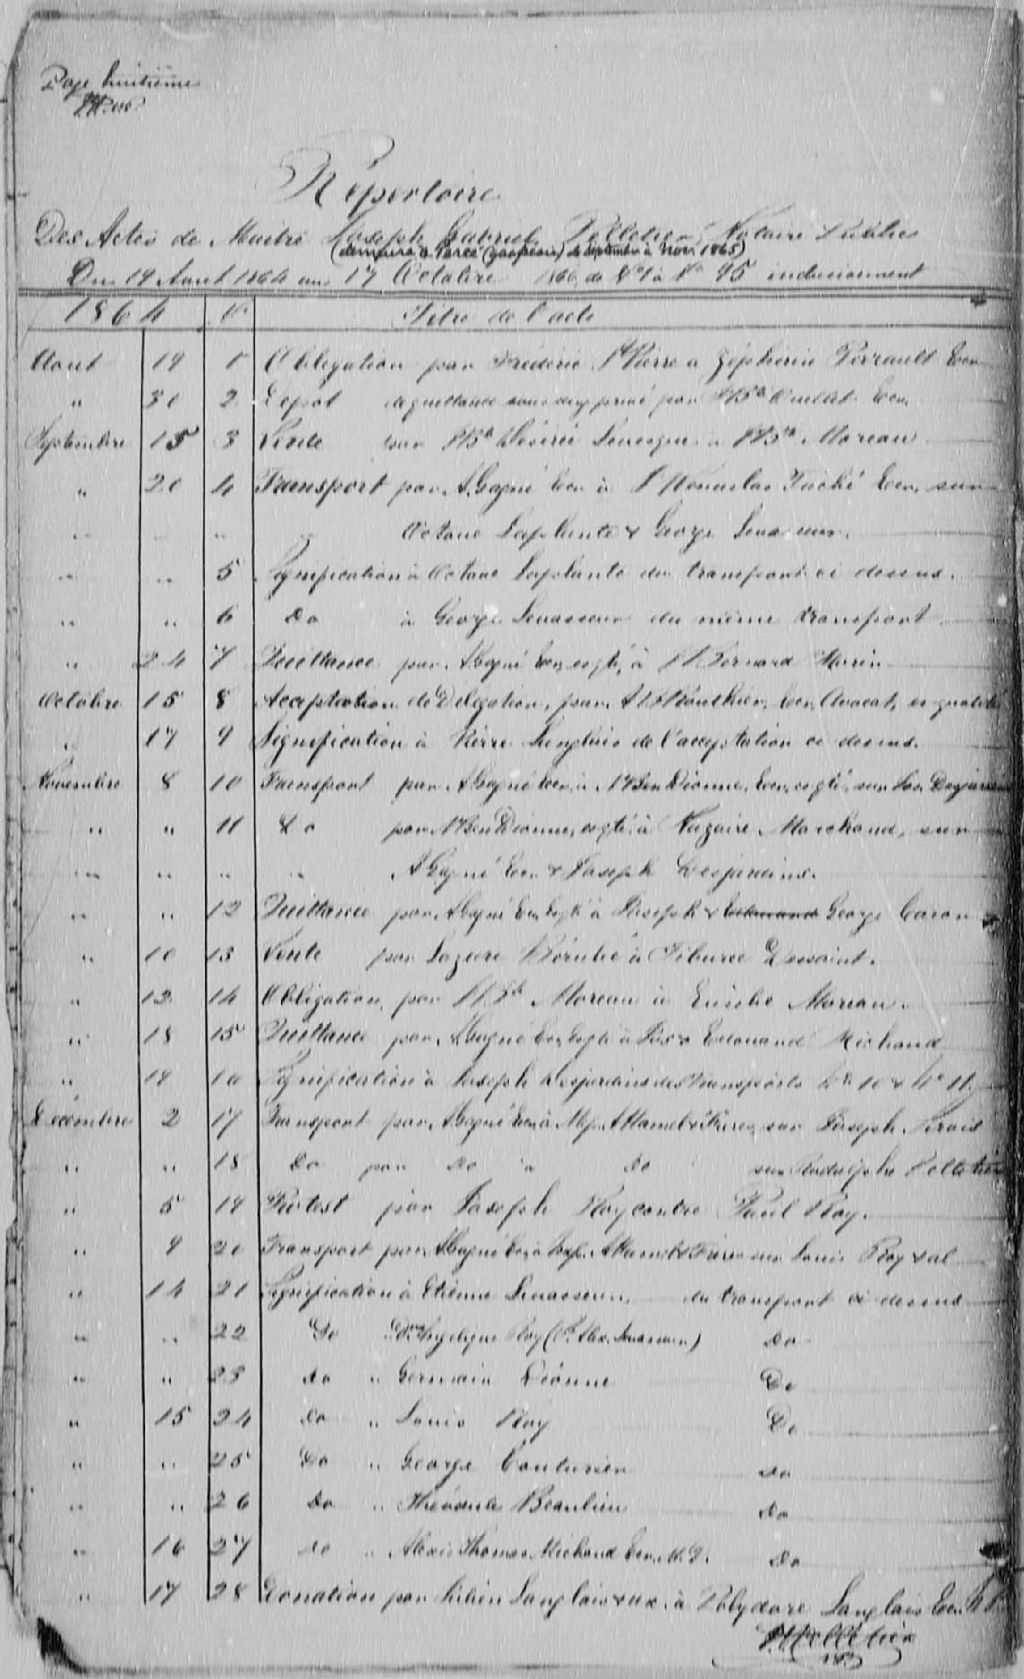 Page huitième
Répertoire
Des Actes de Maitre Joseph Gabriel Pelletier, Notaire Public
(demeura à Percé (Gaspésie) de septembre à Nov. 1865)
Du 19 Aout 1864 au 17 Octobre 1866, de No 1 à No 95 inclusivement
1864 No Titre de l'acte
Aout 19 1 Obligation par Frédéric St Pierre à Zéphirin Perrault Ecr
" 30 2 Dépot de quittance sous seing privé par J Bte Ouellet Ecr.
Septembre 15 3 Vente par J Bte Désiré Levesque à J Bte Moreau
" 20 4 Transport par A. Gagné Ecr à Taché Ecr, sur
" " " " Octave Laplante & George Levasseur.
" " 5 Signification à Octave Laplante du transport ci dessus.
" " 6 do à George Levasseur du même transport
" 24 7 Quittance par A. Gagné Ecr, esqté, à Bernard Morin
Octobre 15 8 Acceptation de Délégation, par A B Routhier, Ecr, Avocat, es qualité
" 17 9 Signification à Pierre Langlais de l'acceptation ci dessus.
Novembre 8 10 Transport par A Gagné Ecr, à N Ben Dionne, Ecr, esqté, sur Jos. Desjardins
" " 11 Do par N Ben Dionne, esqté, à Nazaire Marchand, sur
" " " " A Gagné Ecr & Joseph Desjardins.
" " 12 Quittance par A Gagné Ecr, esqté à Joseph & George Caron
" 10 13 Vente par Lazare Bérubé à Tiburce Dessaint.
" 12 14 Obligation, par J. Bte Moreau à Eusèbe Moreau.
" 18 15 Quittance par A Gagné Ecr, esqté à Jos & Edouard Michaud
" 19 16 Signification à Joseph Desjardins des transports No 10 & No 11.
Décembre 2 17 Transport par A Gagné Ecr, à A Hamel & Frères, sur Joseph Sirois
" " 18 do par do à do sur Rodolphe Pelletier
" 5 19 Protest par Joseph Roy contre Paul Roy.
" 9 20 Transport par A Gagné Ecr, à A Hamel & Frères sur Louis Roy & al
" 14 21 Signification à Etienne Levasseur, du transport ci dessus
" " 22 Do " Angélique Roy (Alex. Levasseur) Do
" " 23 do " Germain Dionne Do
" 15 24 do " Louis Roy Do
" " 25 Do " George Couturier do
" " 26 Do " Théodule Beaulieu do
" 16 27 do " Alexis Thomas Michaud Ecr, M.D. Do
" 17 28 Donation par Langlais & ux. à Polydore Langlais Ecr,
Pelletier